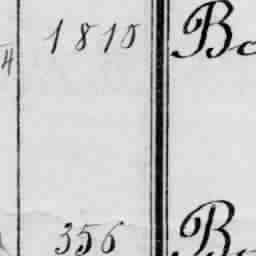 1810 Bo
4
356 Bo